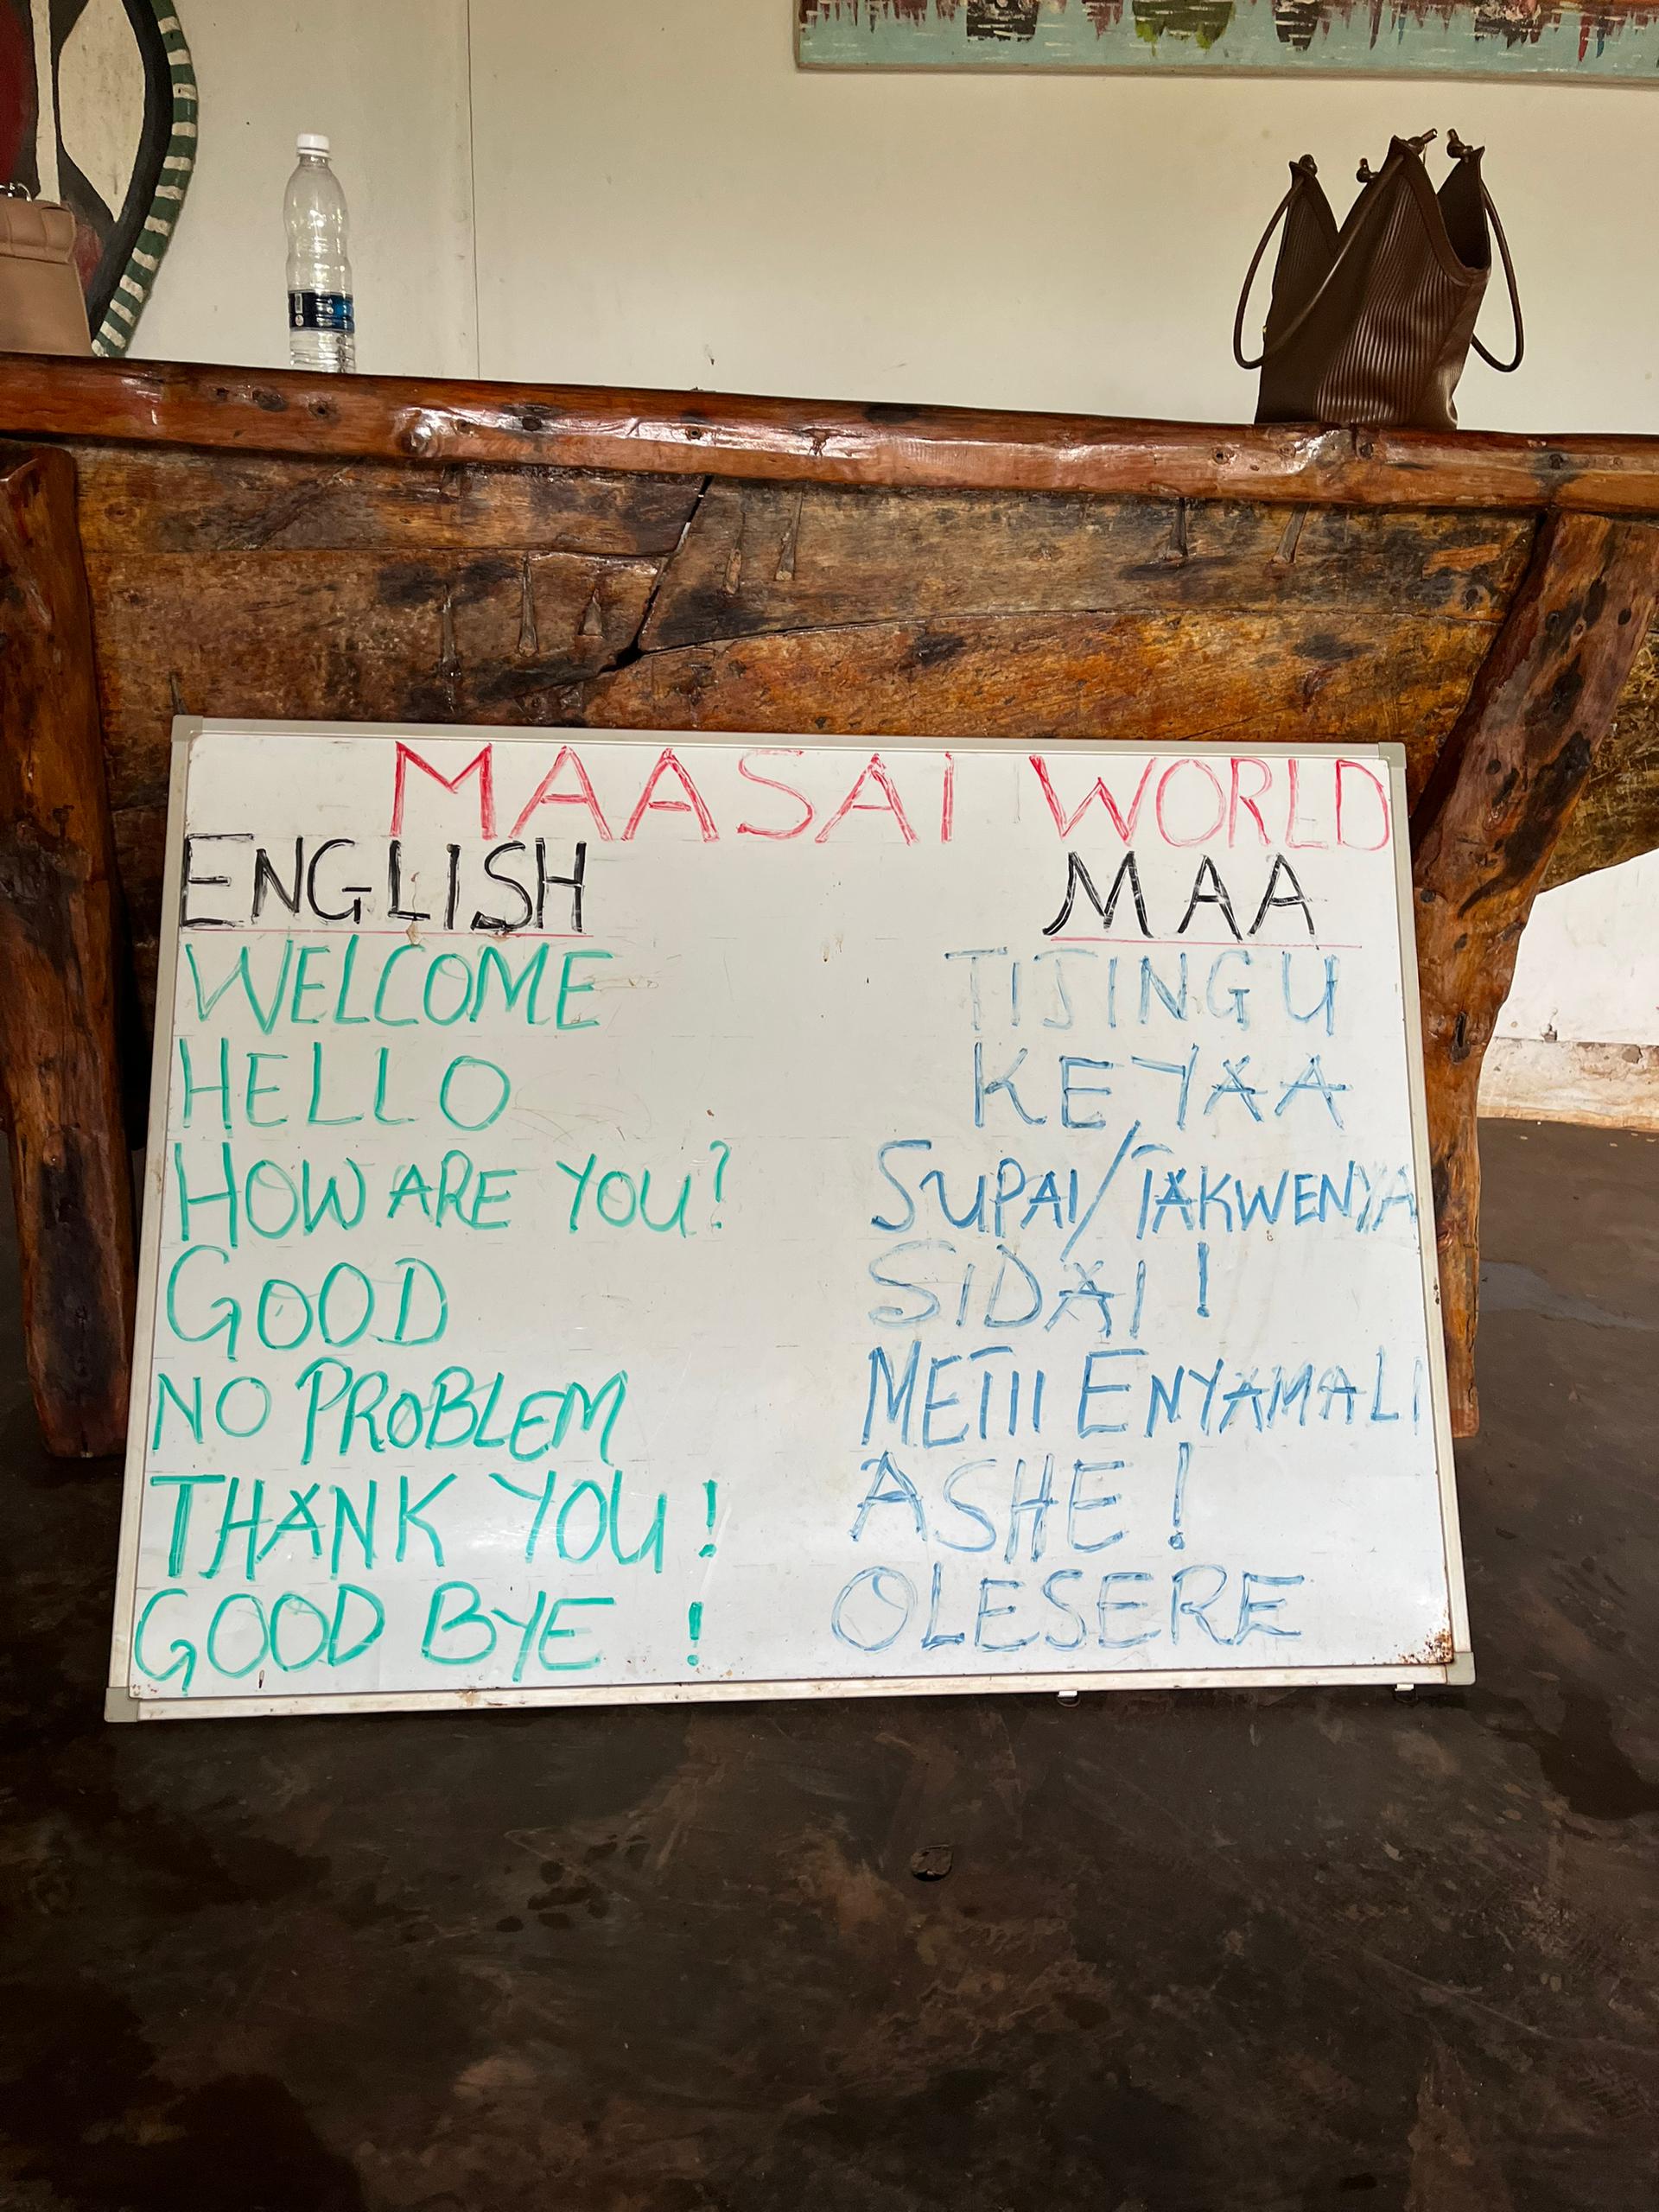 MAASAI WORLD
ENGLISH MAA
WELCOME TIJINGU
HELLO KEYAA
HOW ARE YOU? SUPAI/TAKWENYA
GOOD SIDAI !
NO PROBLEM METIII ENYAMALI
THANK YOU ! ASHE !
GOOD BYE ! OLESERE